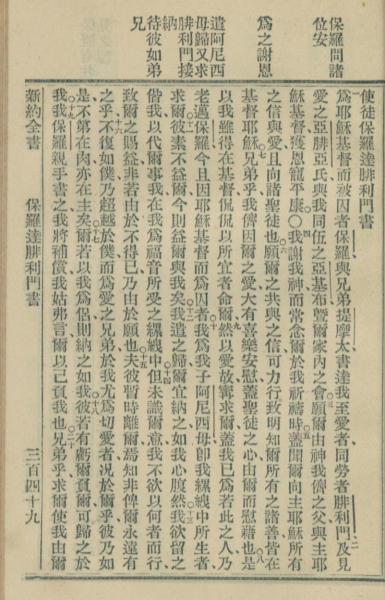 使徒保羅達腓利門書
爲耶穌基督而被囚者保羅與兄弟提摩太書達我至愛者同勞者腓利門及見
愛之亞腓亞氏與我同伍之亞基布曁爾家內之會願爾由神我儕之父與主耶
穌基督獲恩寵平康〇我謝我神而常念爾於我祈禱時蓋聞爾向主耶穌所有
之信與愛且向諸聖徒也願爾之共與之信可力行致明知爾所有之諸善皆在
基督耶穌兄弟乎我儕因爾之愛大有喜樂安慰蓋聖徒之心由爾而慰藉也是
以我雖得在基督侃侃以所宜者命爾然以愛故寧求爾蓋我已爲若此之人乃
老邁保羅今且因耶穌基督而爲囚者我爲我子阿尼西母卽我縲絏中所生者
求爾彼素不益爾今則益爾與我矣我遣之歸爾宜納之如我心腹然我欲留之
偕我以代爾事我在我爲福音所受之縲絏中但未識爾意我不欲以何者而行
致爾之賜益非若由於不得已乃由於願也夫彼暫時離爾焉知非俾爾永遠有
之乎不復如僕乃超越於僕而爲愛之兄弟於我尤爲切愛者况於爾乎彼乃如
是不第在肉亦在主矣爾若以我爲侶則納之如我彼若有虧爾負爾可歸之於
我我保羅親手書之我將補償我姑弗言爾以己負我也兄弟乎求爾使我由爾
保羅問諸
位安
爲之謝恩
遣阿尼西
母歸又求
腓利門接
納
待彼如弟
兄
新約全書
保羅達腓利門書
三百四十九
二
三
四
五
六
七
八
九
十
十一
十二
十三
十四
十五
十六
十七
十八
十九
二十